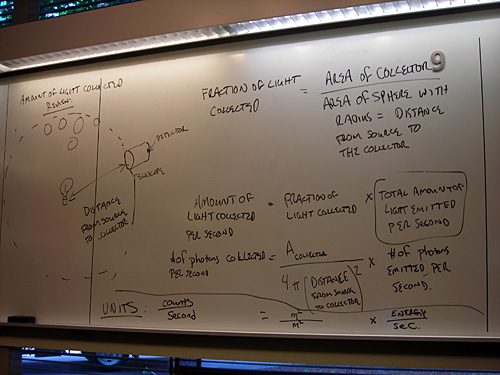 AMOUNT OF LIGHT COLLECTED
REVIEW:
DETECTOR
TELESCOPE
DISTANCE
FROM SOURCE
TO COLLECTOR
FRACTION OF LIGHT
COLLECTED
=
AREA OF COLLECTOR
AREA OF SPHERE WITH
RADIUS = DISTANCE
FROM SOURCE TO
THE COLLECTOR
9
AMOUNT OF
LIGHT COLLECTED
PER SECOND
=
FRACTION OF
LIGHT COLLECTED
×
TOTAL AMOUNT OF
LIGHT EMITTED
PER SECOND
# of photons collected =
PER SECOND
A COLLECTOR
4 π (DISTANCE FROM SOURCE TO COLLECTOR)²
×
# of photons
EMITTED PER
SECOND.
UNITS: counts
Second
=
m²
m²
×
ENERGY
Sec.